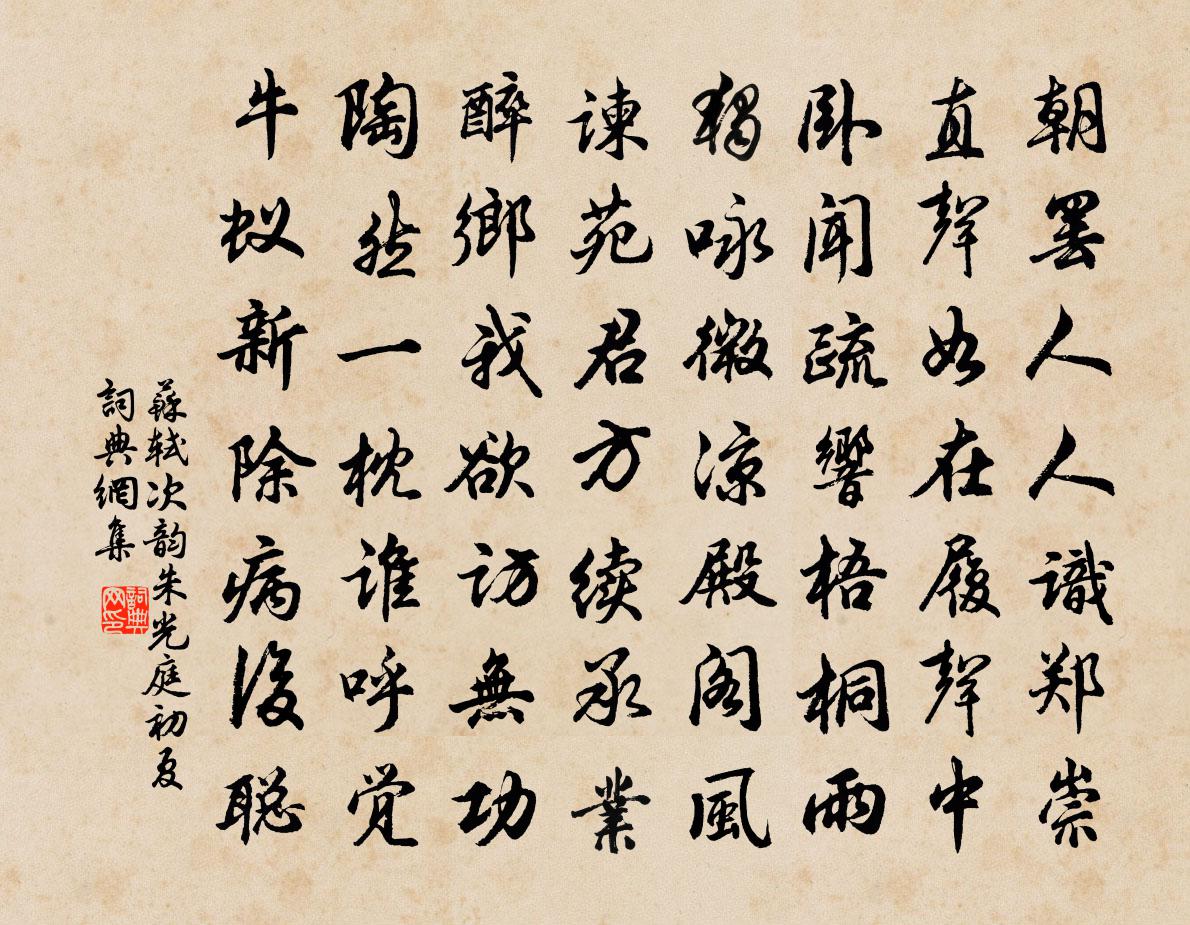 朝罢人人識郑崇
直聲如在履聲中
卧闻疏響梧桐雨
獨咏微凉殿阁風
諫苑君方续承業
醉鄉我欲访無功
陶然一枕谁呼觉
牛蚁新除病後聪
蘇轼次韵朱光庭初夏
詞典網集
詞典网印